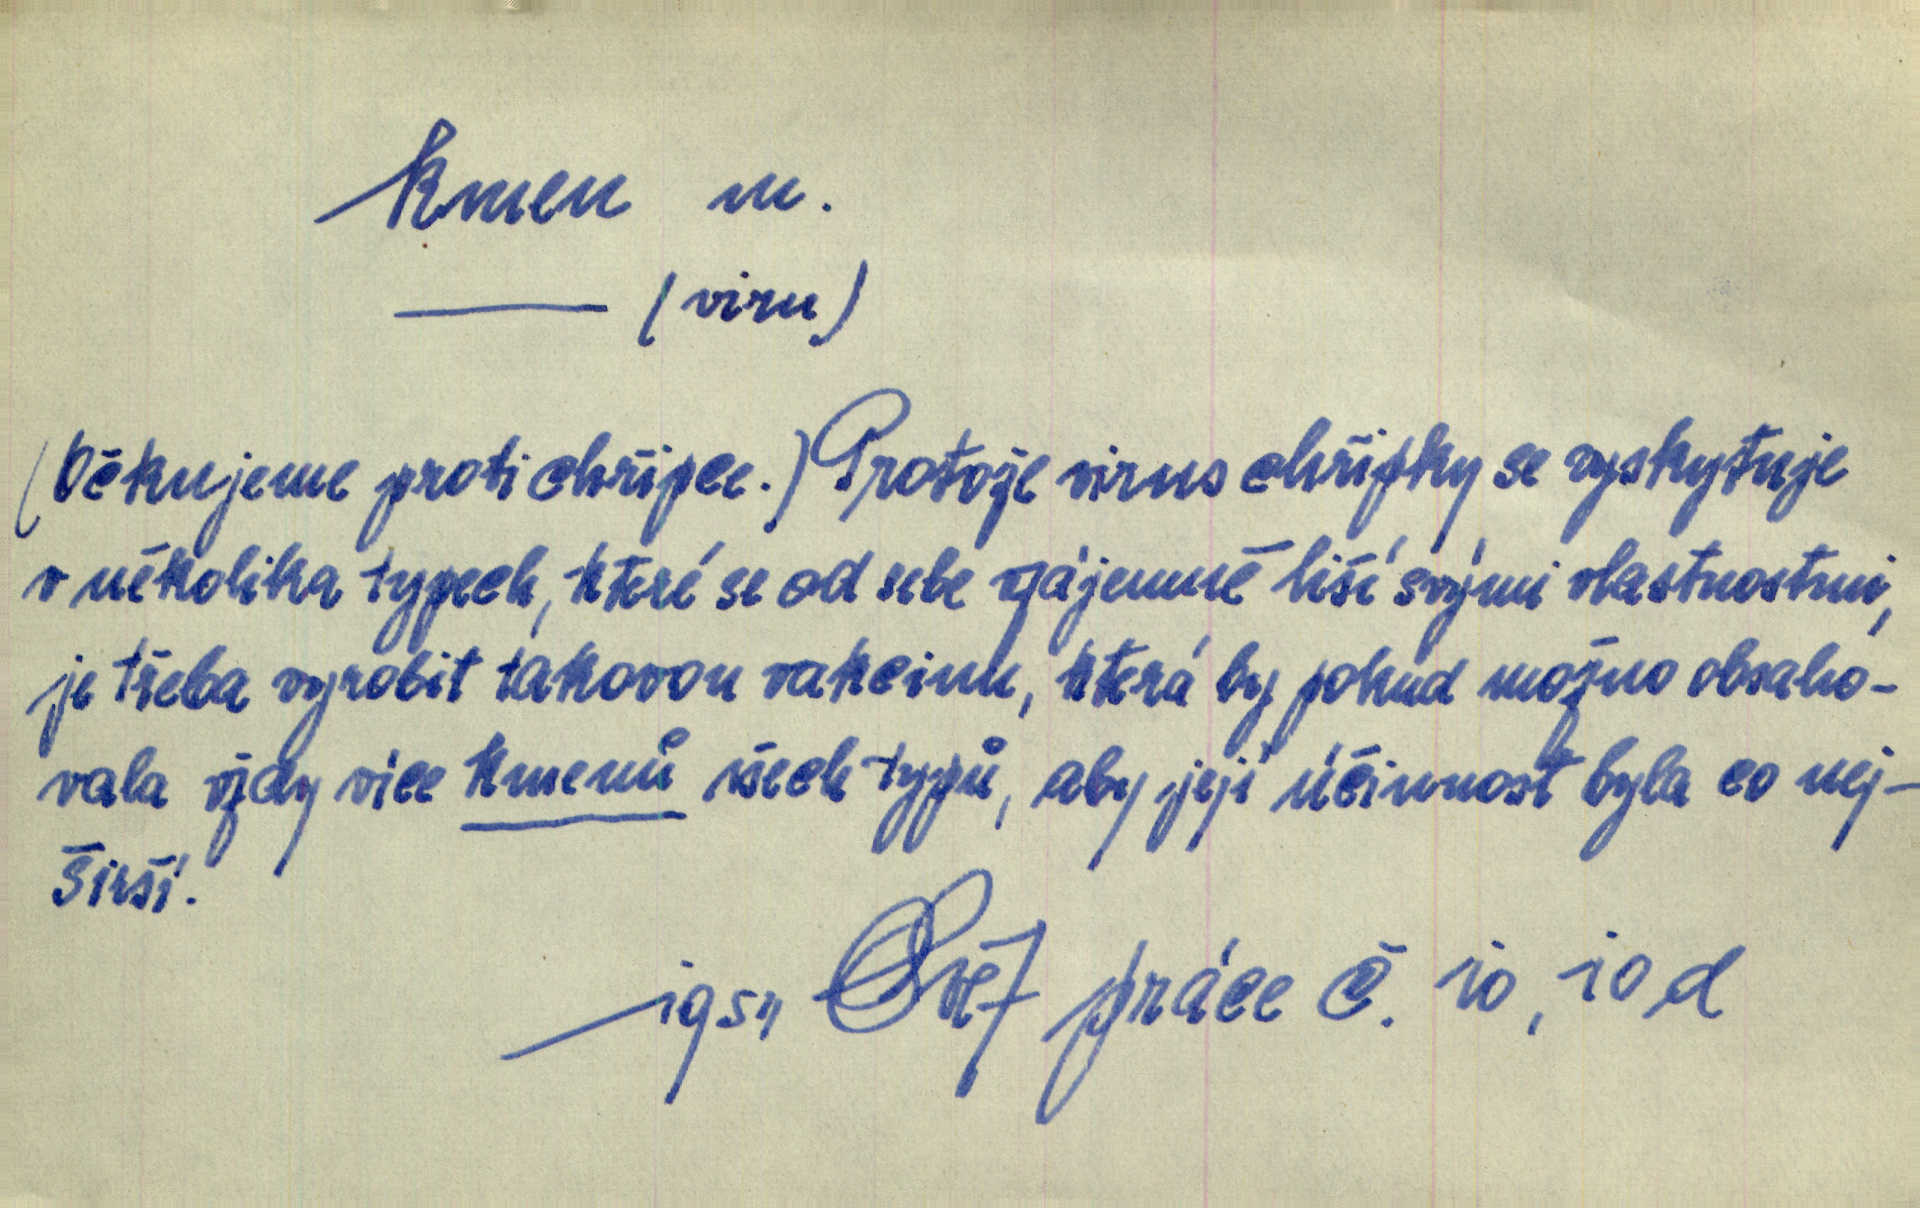 kmen m.
(viru)
(Očkujeme proti chřipce.) Protože virus chřipky se vyskytuje
v několika typech, které se od sebe vzájemně liší svými vlastnostmi,
je třeba vyrobit takovou vakcinu, která by pokud možno obsaho-
vala vždy více kmenů všech typů, aby její účinnost byla co nej-
širší.
1957 Svět práce č. 10, 10 d